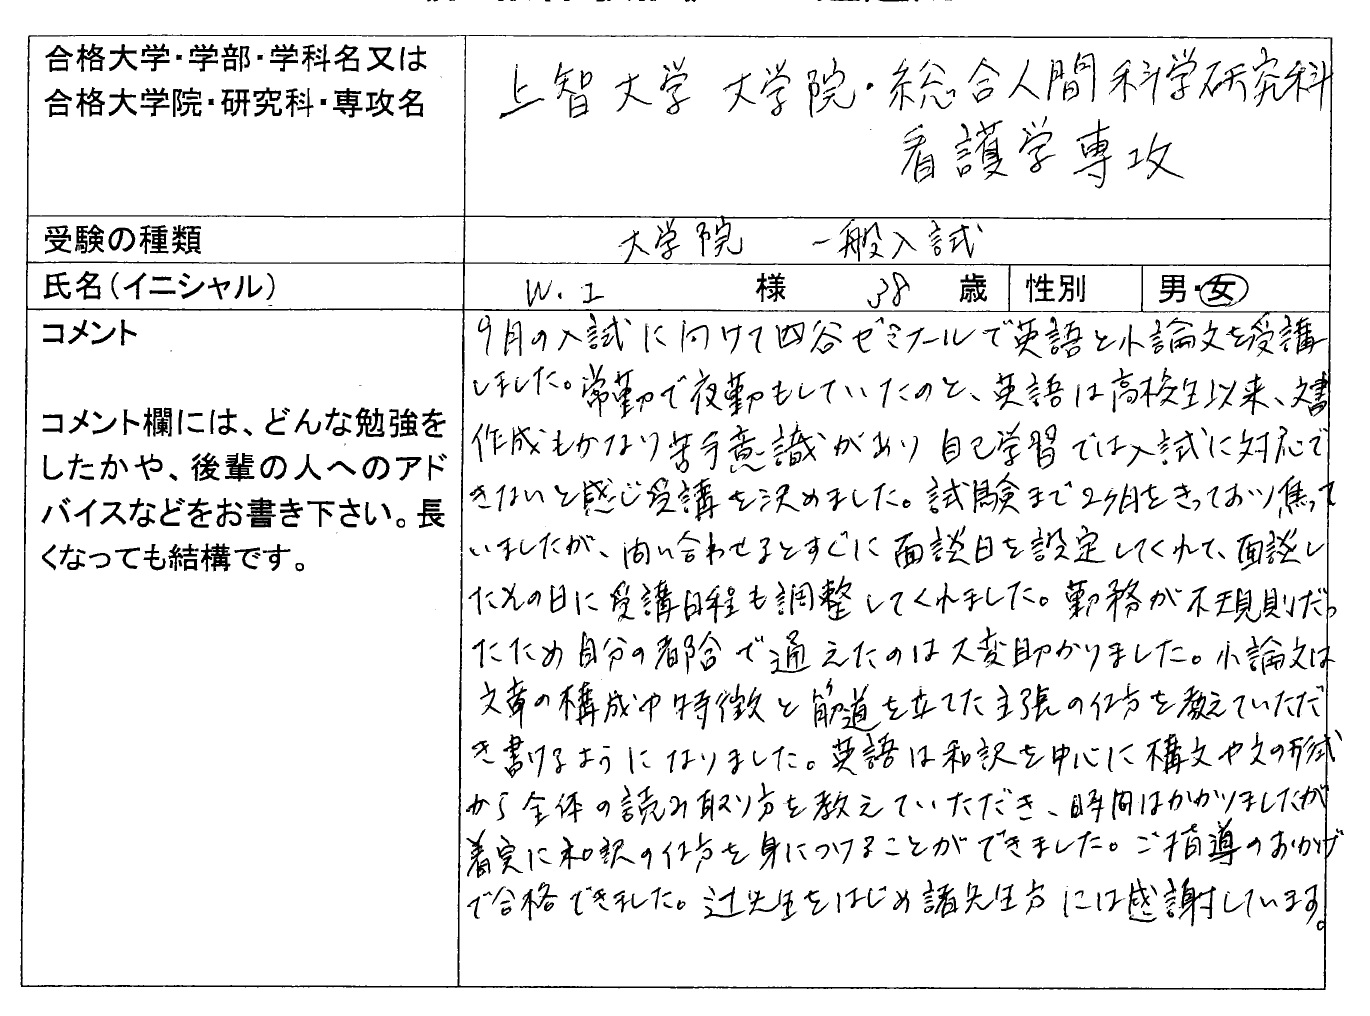 合格大学・学部・学科名又は
合格大学院・研究科・専攻名
上智大学 大学院・総合人間科学研究科
看護学専攻
受験の種類
大学院 一般入試
氏名(イニシャル)
W.I 様 38 歳 性別 男・女
コメント
コメント欄には、どんな勉強を
したかや、後輩の人へのアド
バイスなどをお書き下さい。長
くなっても結構です。
9月の入試に向けて四谷ゼミナールで英語と小論文を受講
しました。常勤で夜勤もしていたのと、英語は高校生以来、文書
作成もかなり苦手意識があり自己学習では入試に対応で
きないと感じ受講を決めました。試験まで2ヶ月をきっており焦って
いましたが、問い合わせるとすぐに面談日を設定してくれて、面談し
たその日に受講日程も調整してくれました。勤務が不規則だっ
たため自分の都合で通えたのは大変助かりました。小論文は
文章の構成や特徴と筋道を立てた主張の仕方を教えていただ
き書けるようになりました。英語は和訳を中心に構文や文の形式
から全体の読み取り方を教えていただき、時間はかかりましたが
着実に和訳の仕方を身につけることができました。ご指導のおかげ
で合格できました。辻先生をはじめ諸先生方には感謝しています。